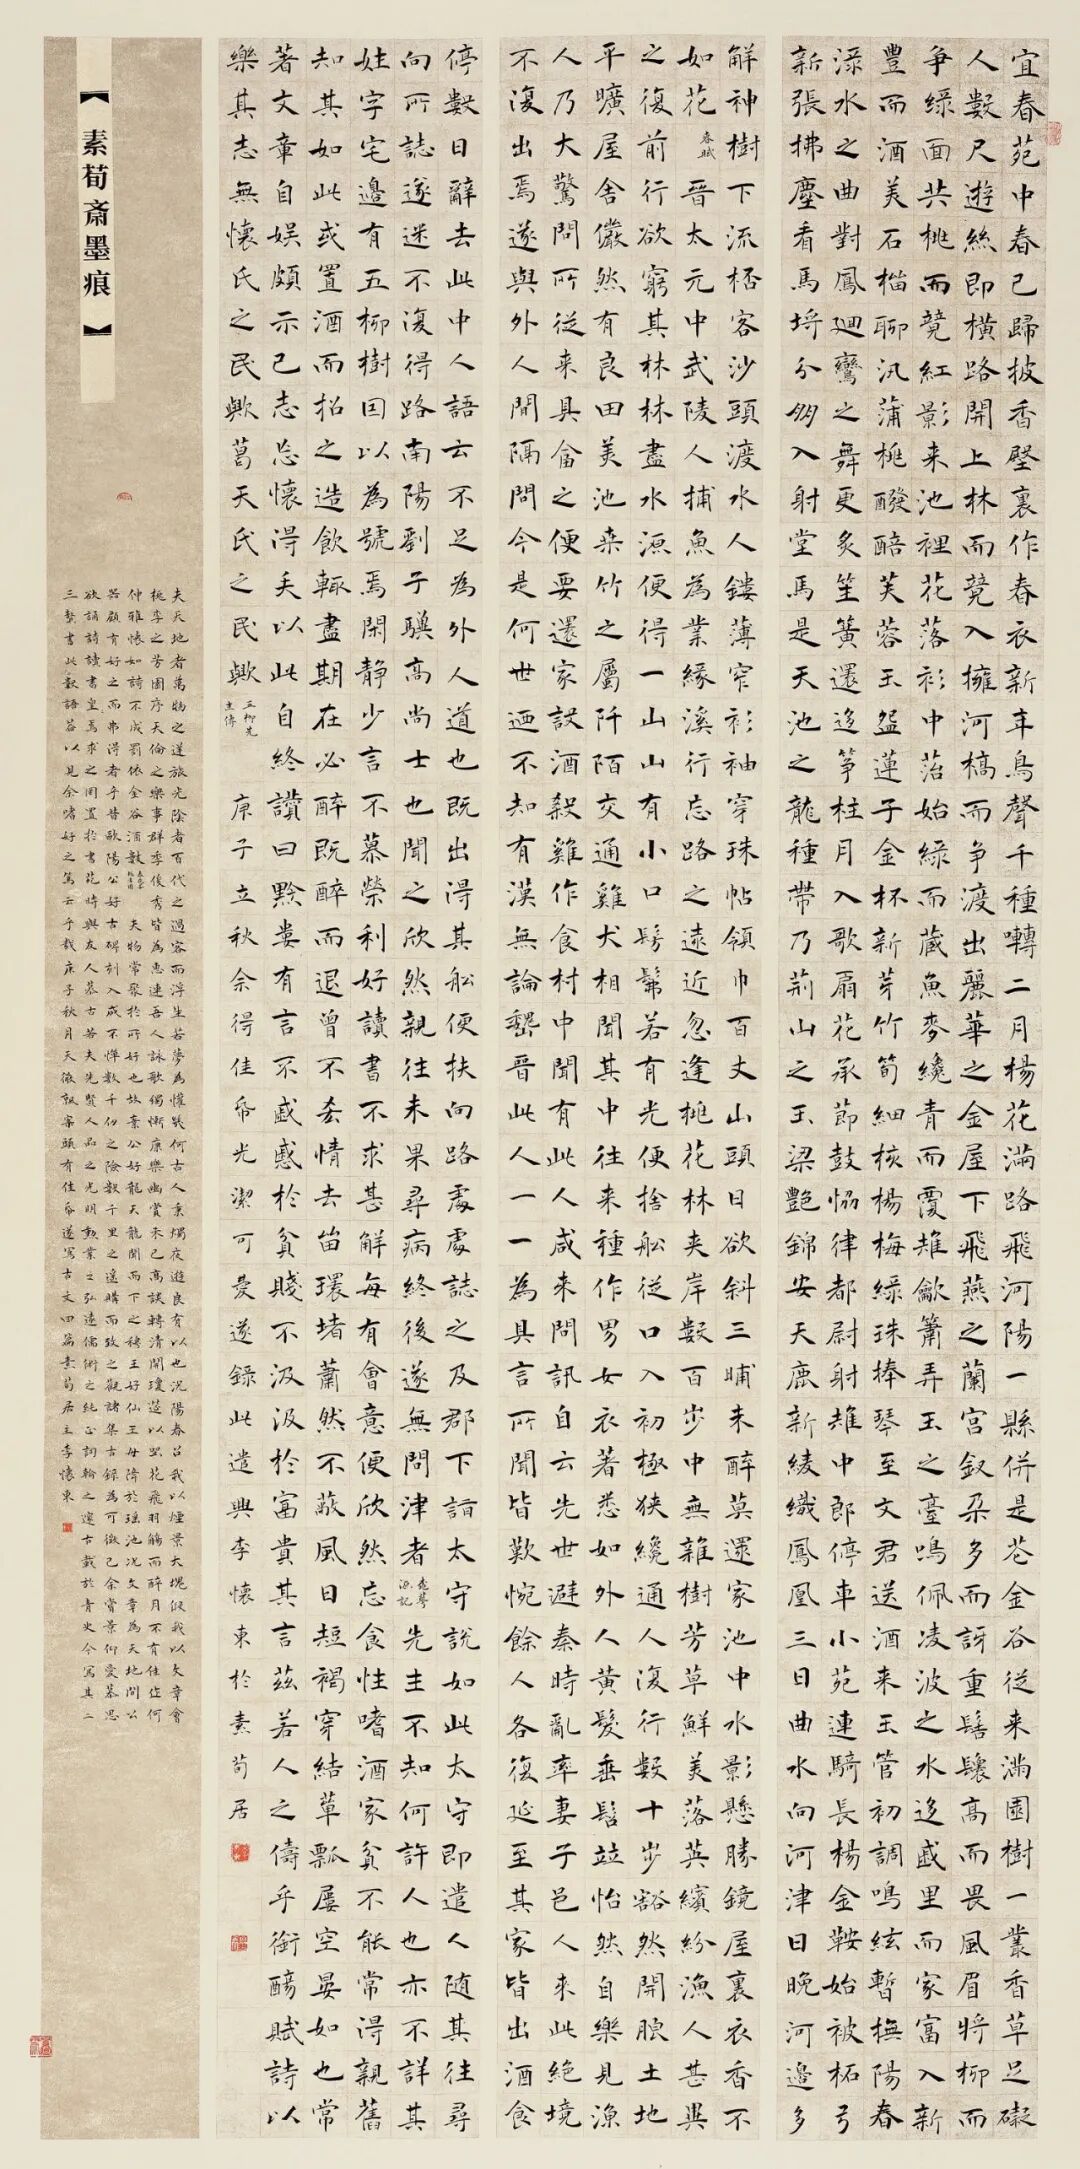 宜春苑中春已歸披香壂裏作春衣新年鳥聲千種囀二月楊花滿路飛河陽一縣併是花金谷從来滿園樹一叢香草足礙
人數尺遊絲即橫路開上林而競入擁河橋而争渡出麗華之金屋下飛燕之蘭宮釵朵多而訝重髻鬟高而畏風眉將柳而
争綠面共桃而競紅影来池裡花落衫中苔始綠而藏魚麥纔青而覆雉龡簫弄玉之臺鳴佩凌波之水迻戚里而家富入新
豐而酒美石榴聊汎蒲桃醱醅芙蓉玉盌蓮子金杯新芽竹筍細核楊梅綠珠捧琴至文君送酒来玉管初調鳴絃暫撫陽春
渌水之曲對鳳迴鸞之舞更炙笙簧還迻筝柱月入歌扇花承節鼓協律都尉射雉中郎停車小苑連騎長楊金鞍始被柘弓
新張拂塵看馬埒分朋入射堂馬是天池之龍種帶乃荊山之玉梁艷錦安天鹿新綾織鳳凰三日曲水向河津日晚河邊多
解神樹下流杯客沙頭渡水人鏤薄窄衫袖穿珠帖領巾百丈山頭日欲斜三晡未醉莫還家池中水影懸勝鏡屋裏衣香不
如花春賦晉太元中武陵人捕魚為業緣溪行忘路之遠近忽逢桃花林夾岸數百步中無雜樹芳草鮮美落英繽紛漁人甚異
之復前行欲窮其林林盡水源便得一山山有小口髣髴若有光便捨船從口入初極狹纔通人復行數十步豁然開朗土地
平曠屋舍儼然有良田美池桒竹之屬阡陌交通雞犬相聞其中往来種作男女衣著悉如外人黃髮垂髫竝怡然自樂見漁
人乃大驚問所從来具畣之便要還家設酒殺雞作食村中聞有此人咸来問訊自云先世避秦時亂率妻子邑人来此絶境
不復出焉遂與外人間隔問今是何世迺不知有漢無論魏晉此人一一為具言所聞皆歎惋餘人各復延至其家皆出酒食
停數日辭去此中人語云不足為外人道也既出得其船便扶向路處處誌之及郡下詣太守說如此太守即遣人随其往尋
向所誌遂迷不復得路南陽劉子驥高尚士也聞之欣然親往未果尋病終後遂無問津者桃花源記先生不知何許人也亦不詳其
姓字宅邊有五柳樹因以為號焉閑静少言不慕榮利好讀書不求甚解每有會意便欣然忘食性嗜酒家貧不能常得親舊
知其如此或置酒而招之造飲輒盡期在必醉既醉而退曾不吝情去留環堵蕭然不蔽風日短褐穿結簞瓢屢空晏如也常
著文章自娛頗示己志忘懷得失以此自終讚曰黔婁有言不戚戚於貧賤不汲汲於富貴其言茲若人之儔乎銜觴賦詩以
樂其志無懷氏之民歟葛天氏之民歟五柳先生傳庚子立秋余得佳帋光潔可愛遂錄此遣興李懷東於素荀居
【素荀斎墨痕】
夫天地者萬物之逆旅光陰者百代之過客而浮生若夢為懽幾何古人秉燭夜遊良有以也況陽春召我以煙景大塊假我以文章會
桃李之芳園序天倫之樂事群季俊秀皆為惠連吾人詠歌獨慚康樂幽賞未已高談轉清開瓊筵以坐花飛羽觴而醉月不有佳作何
伸雅懷如詩不成罰依金谷酒數夫物常聚於所好也故葉公好龍天龍聞而下之穆王好仙王母降於瑤池況文章為天地間公
器顧有好之而弗得者乎昔歐陽公好古碑刻不憚數千仞之險數千里之遠購而致之觀諸集古錄為可徵已余嘗景仰愛慕思
欲誦詩讀書皇焉求之閒置於書苑時與友人慕古若夫先賢人品之光明勳業之弘遠儒術之純正詞翰之邃古載於青史今寫其二
三槧書此數語若以見余嗜好之篤云乎哉庚子秋月案頭有佳帋遂寫古文四篇素荀居主李懷東